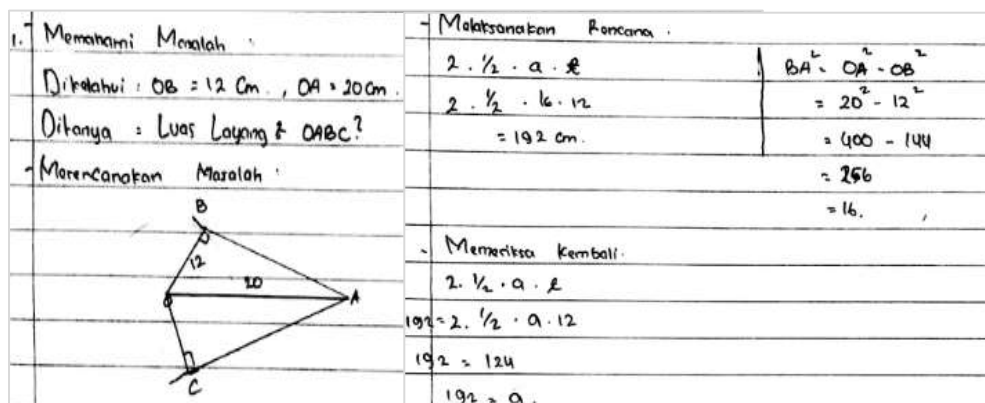 1. - Memahami Masalah :
Diketahui : OB = 12 Cm. , OA = 20 cm.
Ditanya : Luas Layang 2 OABC?
- Merencanakan Masalah :
B
12
20
O
A
C
- Melaksanakan Rencana .
2 . 1/2 . a . t
2 . 1/2 . 16 . 12
= 192 cm.
BA² = OA² - OB²
= 20² - 12²
= 400 - 144
= 256
= 16.
- Memeriksa Kembali.
2. 1/2 . a . t
192 = 2. 1/2 . a . 12
192 = 12a
192 = a.